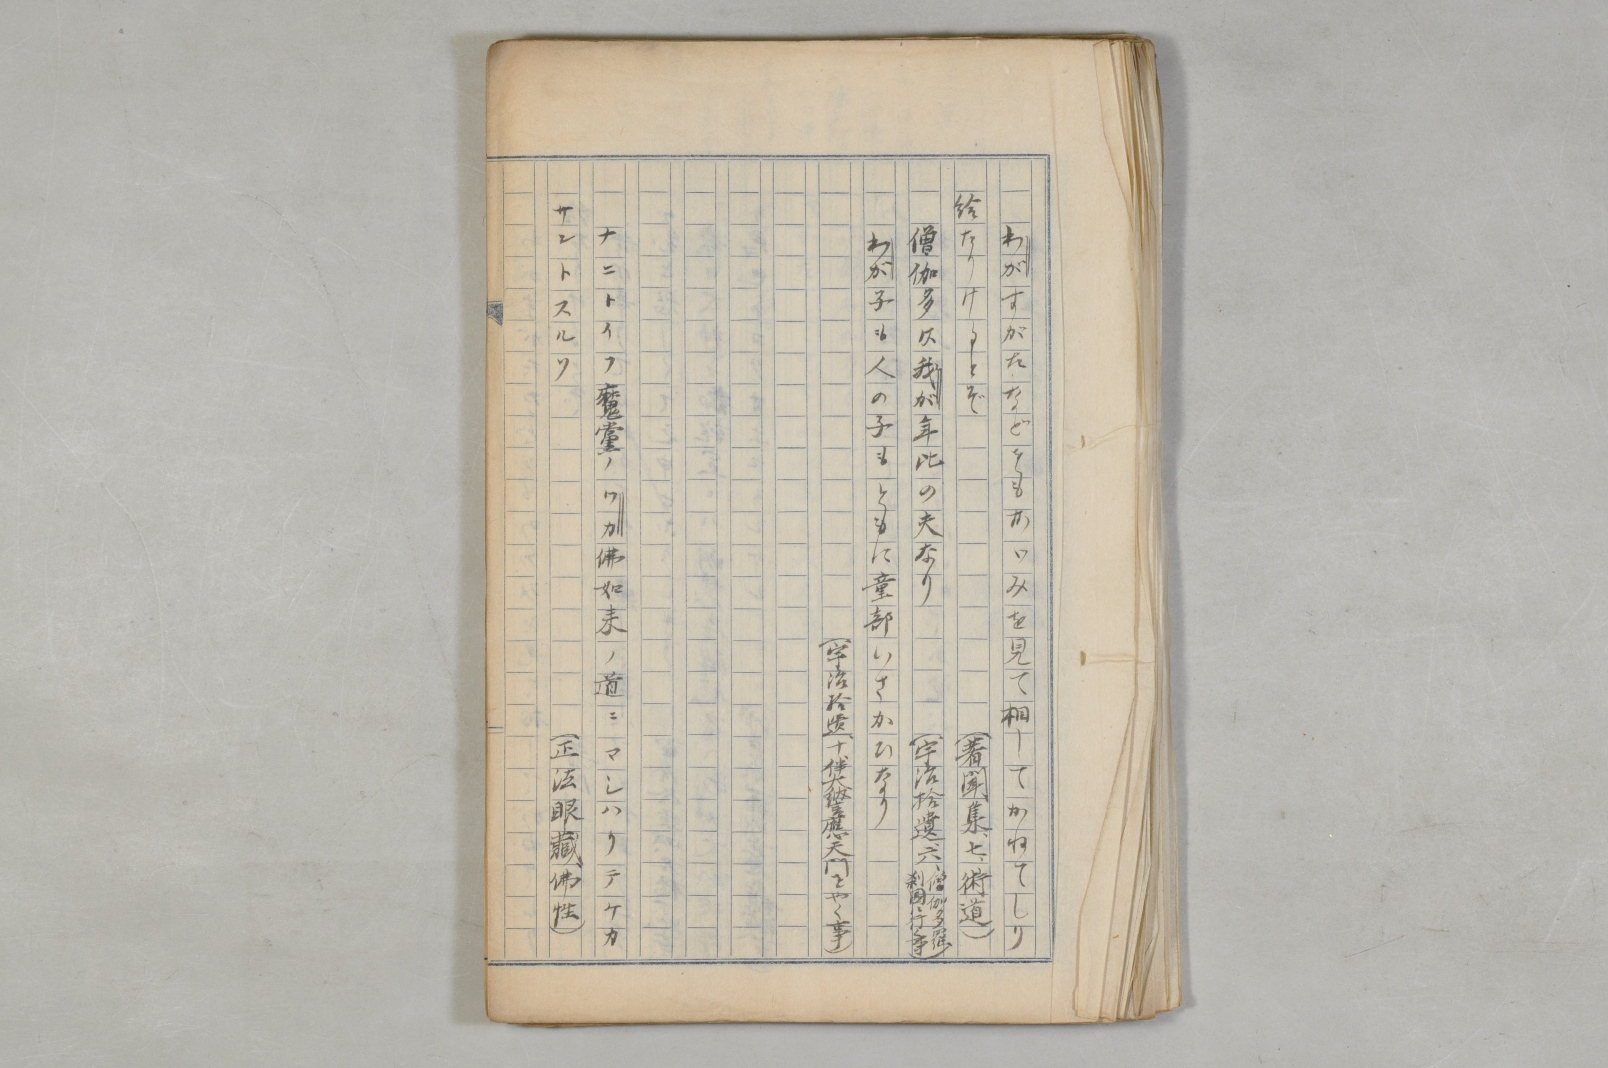 わがすがたなどをもかゞみを見て相してかねてしり
給たりけるとぞ
（著聞集、七、術道）
僧伽多は我が年比の夫なり
（宇治拾遺、六、僧伽多羅刹国に行く事）
わが子も人の子もともに童部いさかひなり
（宇治拾遺、十、伴大納言應天門をやく事）
ナニトイフ魔黨ノワカ佛如来ノ道ニマシハリテケカ
サントスルソ
（正法眼藏、佛性）